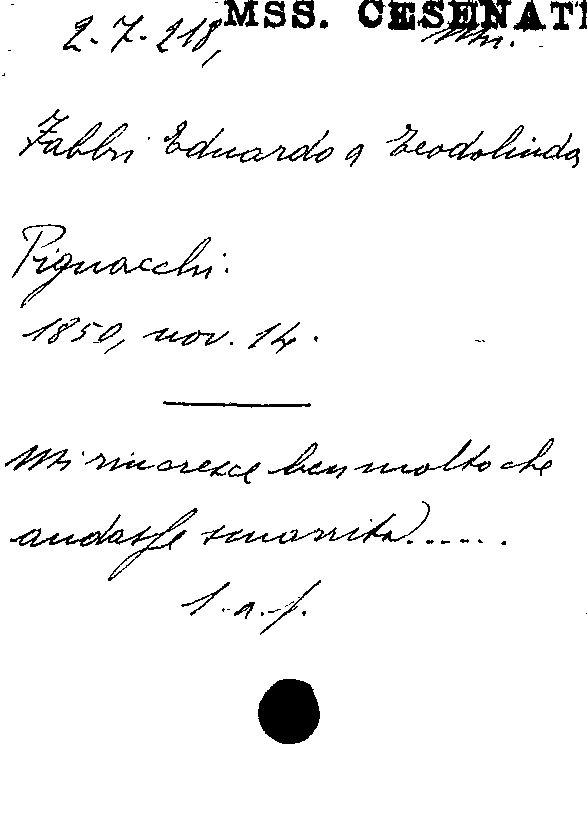 MSS. CESENATI
2-7-218, Mn.
Fabbri Eduardo a Teodolinda
Pignacchi.
1850, nov. 14.
Mi rincresce ben molto che
andasse smarrita......
l. a. f.